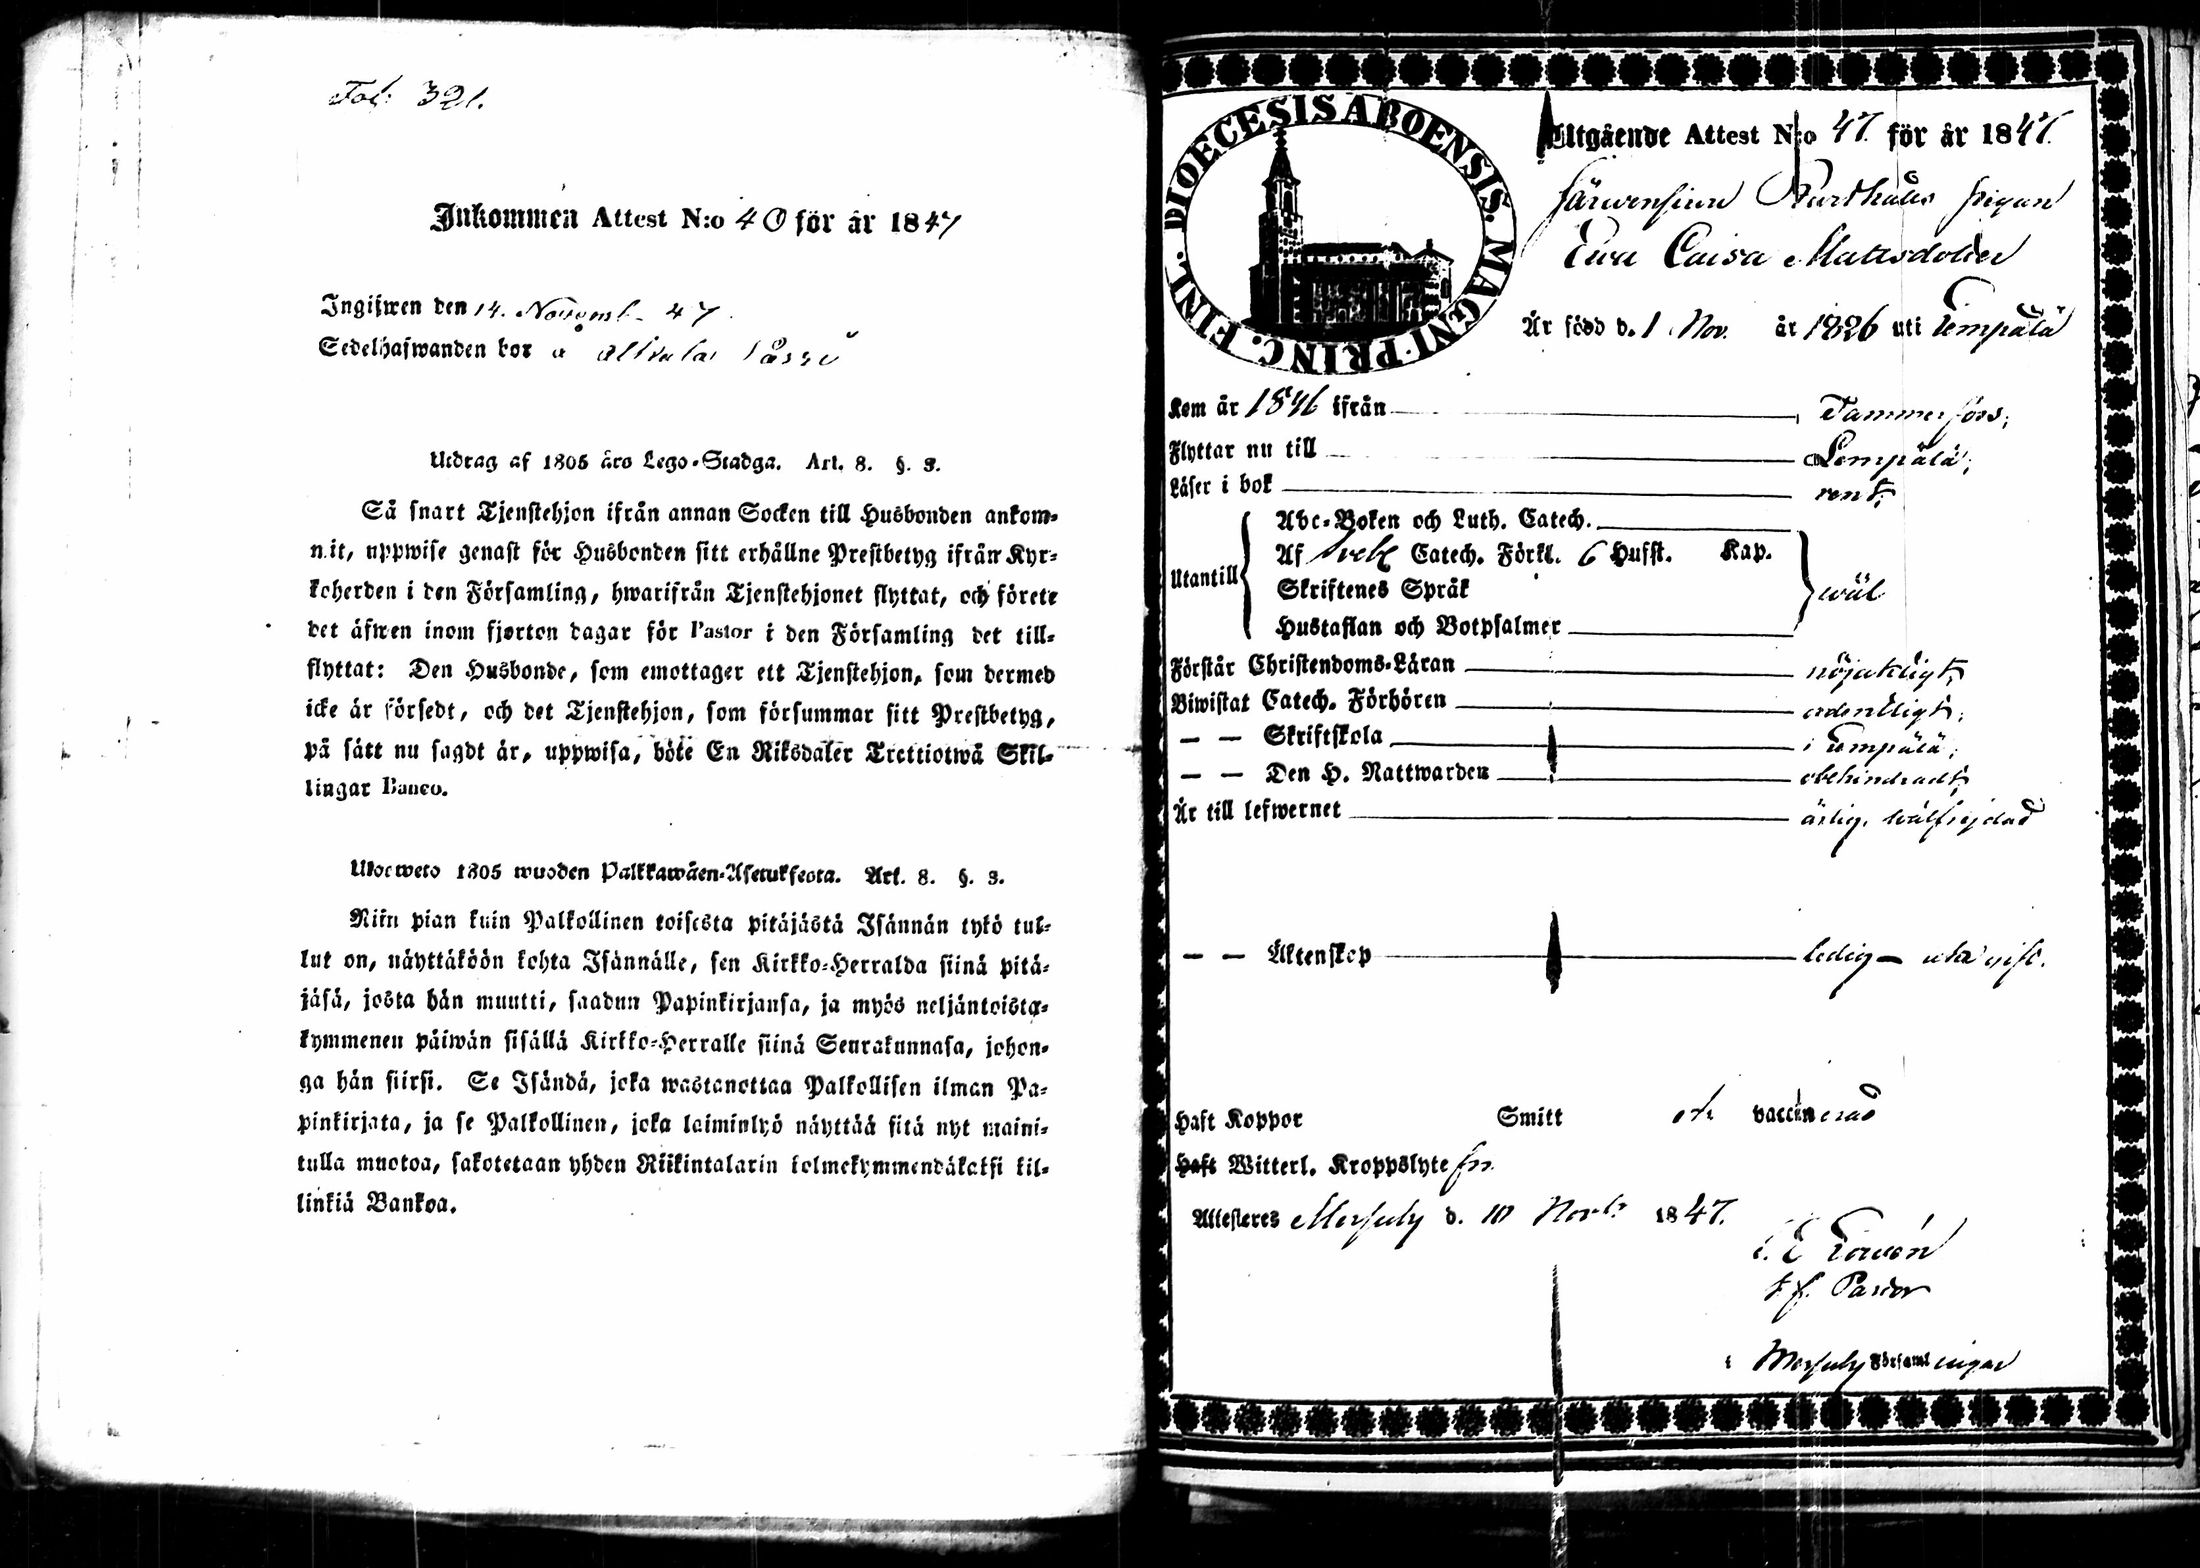 Fol: 321.
Inkommen Attest N:o 40 för år 1847
Ingifwen den 14. Novemb. 47.
Sedelhafwanden bor å
Utdrag af 1805 års Lego-Stadga. Art. 8. §. 3.
Så snart Tjenstehjon ifrån annan Socken till Husbonden ankom-
mit, uppwise genast för Husbonden sitt erhållne Prestbetyg ifrån Kyr-
koherden i den Församling, hwarifrån Tjenstehjonet flyttat, och förete
det äfwen inom fjorton dagar för Pastor i den Församling det till-
flyttat: Den Husbonde, som emottager ett Tjenstehjon, som dermed
icke är försedt, och det Tjenstehjon, som försummar sitt Prestbetyg,
på sätt nu sagdt är, uppwisa, böte En Riksdaler Trettiotwå Skil-
lingar Banco.
Ulosweto 1805 wuoden Palkkawäen-Asetuksesta. Art. 8. §. 3.
Niin pian kuin Palkollinen toisesta pitäjästä Isännän tykö tul-
lut on, näyttäköön kohta Isännälle, sen Kirkko-Herralda siinä pitä-
jäsä, josta hän muutti, saadun Papinkirjansa, ja myös neljäntoista-
kymmenen päiwän sisällä Kirkko-Herralle siinä Seurakunnasa, johon-
ga hän siirsi. Se Isändä, joka wastanottaa Palkollisen ilman Pa-
pinkirjata, ja se Palkollinen, joka laiminlyö näyttää sitä nyt maini-
tulla muotoa, sakotetaan yhden Riikintalarin kolmekymmendäkaksi kil-
linkiä Bankoa.
DIOECESIS ABOENSIS. MAGNI PRINC. FINL.
Utgående Attest N:o 47. för år 1847.
pigan
Ewa Caisa Mattsdotter
Är född d. 1 Nov. år 1826 uti Lempälä
Kom år 1846 ifrån Tammerfors;
Flyttar nu till Lempälä;
Läser i bok rent;
Abc-Boken och Luth. Catech.
Af Sveb. Catech. Förkl. 6 Hufst. Kap.
Utantill
Skriftenes Språk
wäl
Hustaflan och Botpsalmer
Förstår Christendoms-Läran nöjaktigt;
Biwistat Catech. Förhören ordentligt;
— — Skriftskola i Lempälä;
— — Den H. Nattwarden obehindradt;
Är till lefwernet ärlig, wälfrejdad
— — Äktenskap ledig —
Haft Koppor Smitt vaccinerad
Haft Witterl. Kroppslyte
Attesteres d. 10 Novbr 1847.
Pastor
i Församlingar